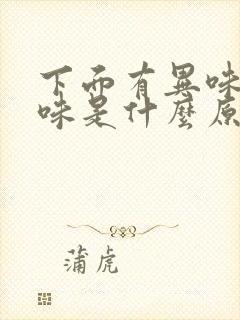 下面有異味
味是什麼原
蒲虎